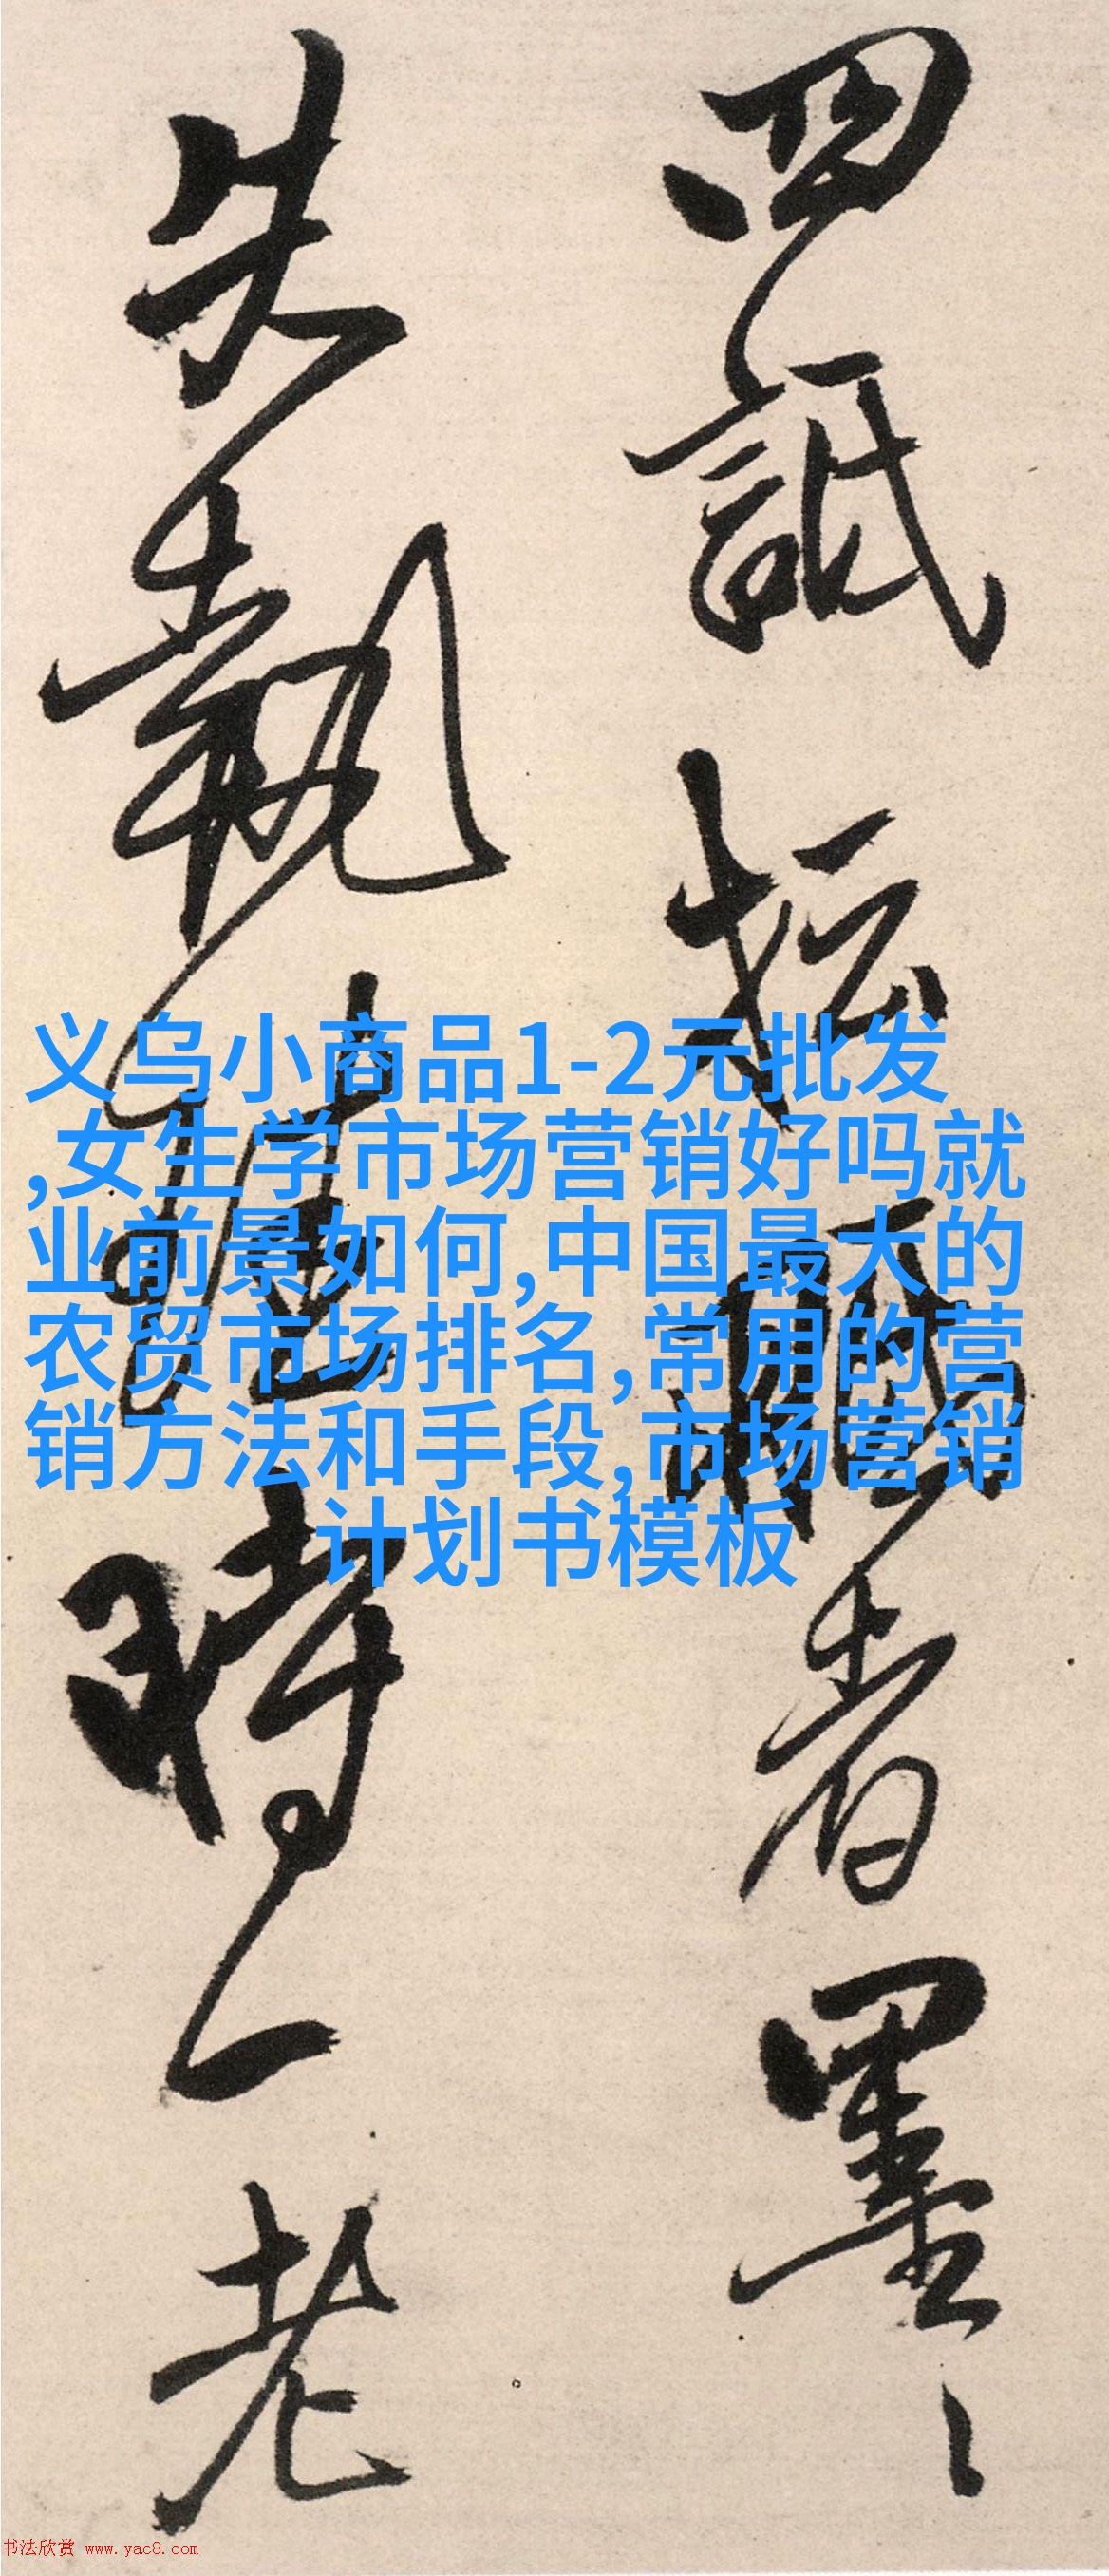 四詆者墨
失執時一老
义乌小商品1-2元批发
,女生学市场营销好吗就
业前景如何,中国最大的
农贸市场排名,常用的营
销方法和手段,市场营销
计划书模板
书法欣赏 www.yac8.com